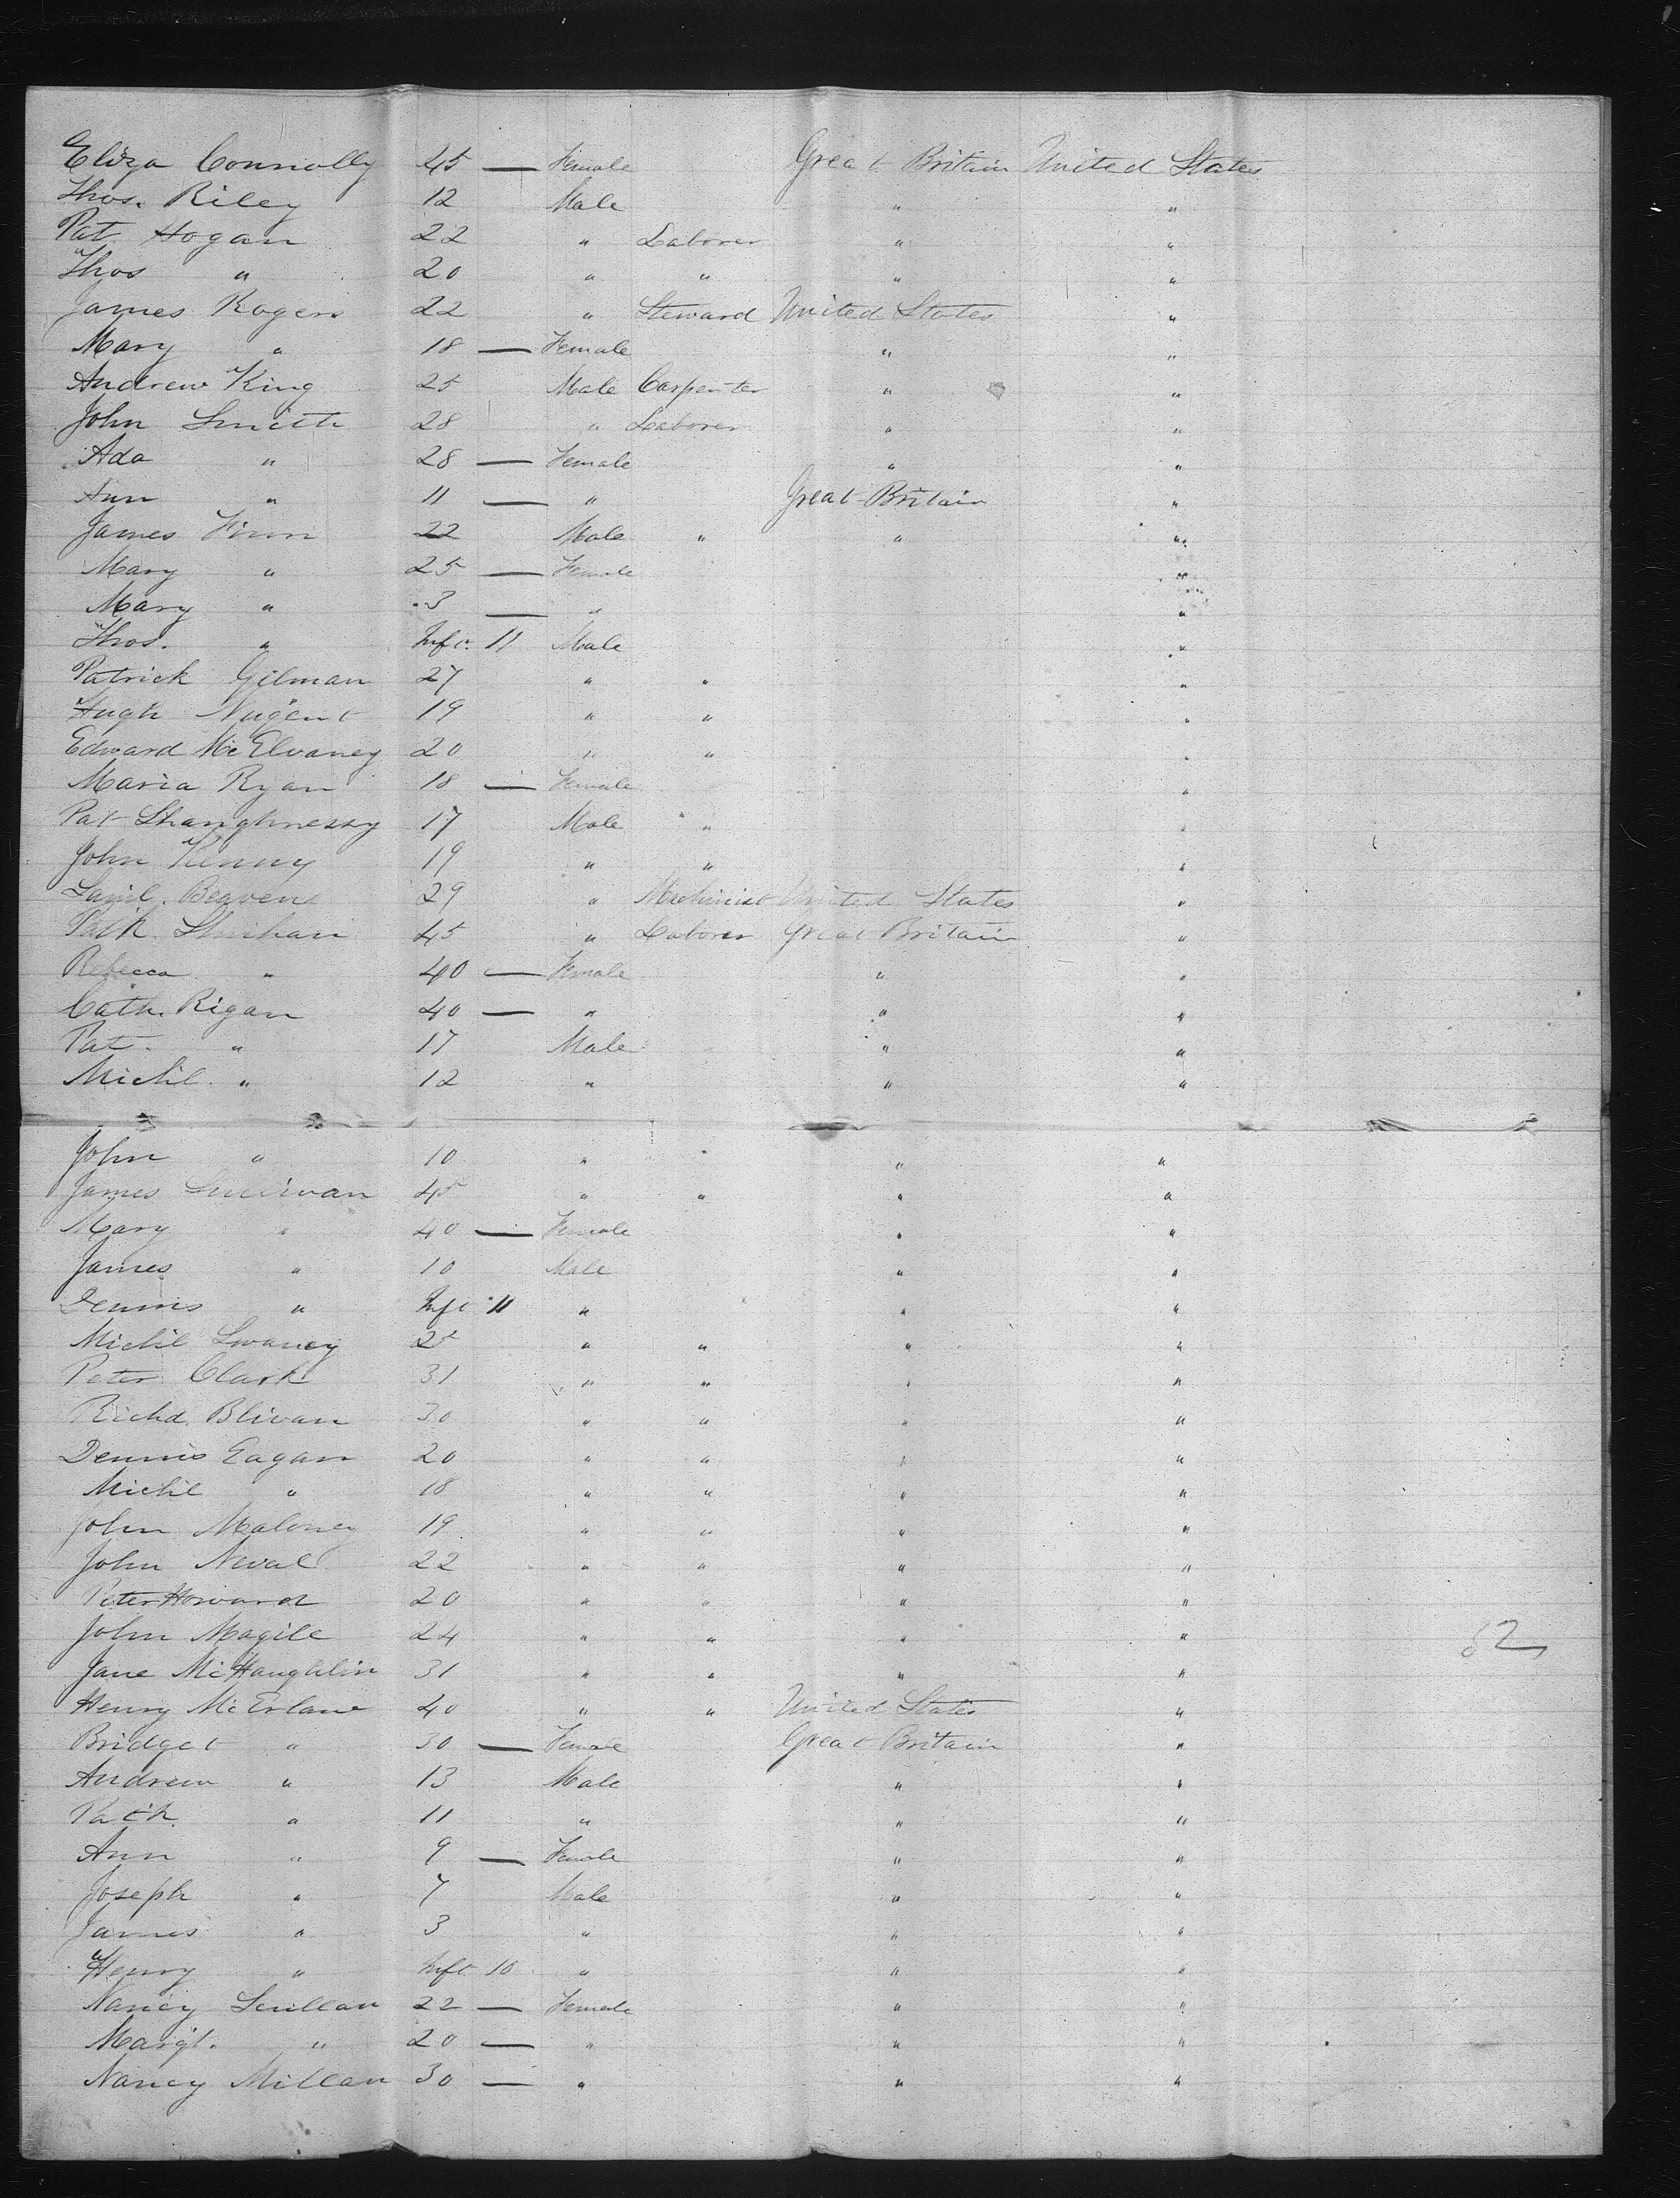 Eliza Connolly 45 — Female Great Britain United States
Thos. Riley 12 Male " "
Pat Hogan 22 " Laborer " "
Thos " 20 " " " "
James Rogers 22 " Steward United States "
Mary " 18 — Female " "
Andrew King 25 Male Carpenter " "
John Smith 28 " Laborer " "
Ada " 28 — Female " "
Ann " 11 — " Great Britain "
James Finn 22 Male " " "
Mary " 25 — Female "
Mary " 3 — " "
Thos. " Inft. 11 Male "
Patrick Gilman 27 " " "
Hugh Nugent 19 " " "
Edward McElvaney 20 " " "
Maria Ryan 18 — Female "
Pat Shaughnessy 17 Male " "
John Kenny 19 " " "
Saml. Beavens 29 " Machinist United States "
Patk Shehan 45 " Laborer Great Britain "
Rebecca " 40 — Female " "
Cath. Rigan 40 — " " "
Pat. " 17 Male " "
Michl. " 12 " " "
John " 10 " " " "
James Sullivan 45 " " " "
Mary " 40 — Female " "
James " 10 Male " "
Dennis " Inft 11 " " "
Michl Swaney 25 " " " "
Peter Clark 31 " " " "
Richd. Blivan 30 " " " "
Dennis Eagan 20 " " " "
Michl " 18 " " " "
John Maloney 19 " " " "
John Neval 22 " " " "
Peter Howard 20 " " " "
John Magill 24 " " " "
82
Jane McHaughlin 31 " " " "
Henry McErlane 40 " " United States "
Bridget " 30 — Female Great Britain "
Andrew " 13 Male " "
Patk. " 11 " " "
Ann " 9 — Female " "
Joseph " 7 Male " "
James " 3 " " "
Henry " Inft 10 " " "
Nancy Scullan 22 — Female " "
Margt. " 20 — " " "
Nancy Millan 30 — " " "